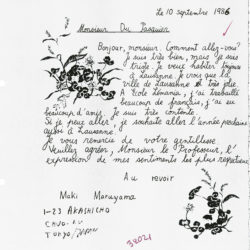 Le 10 septembre 1986
Monsieur Du Pasquier
Bonjour, monsieur. Comment allez-vous?
Je suis très bien, mais je suis
triste. Je veux habiter toujours
à Lausanne. Je crois que la
ville de Lausanne est très jolie.
A Ecole Lémania, j'ai travaillé
beaucoup de français, j'ai eu
beaucoup d'amis. Je suis très contente.
Si je peux aller, je souhaite aller l'année prochaine
aussi à Lausanne.
Je vous remercie de votre gentillesse
Veuillez agréer, Monsieur le Professeur, l'
expression de mes sentiments les plus respectueux
Au revoir
Maki Maruyama
1-23 AKASHICHO
CHUO-KU
TOKYO/JAPON